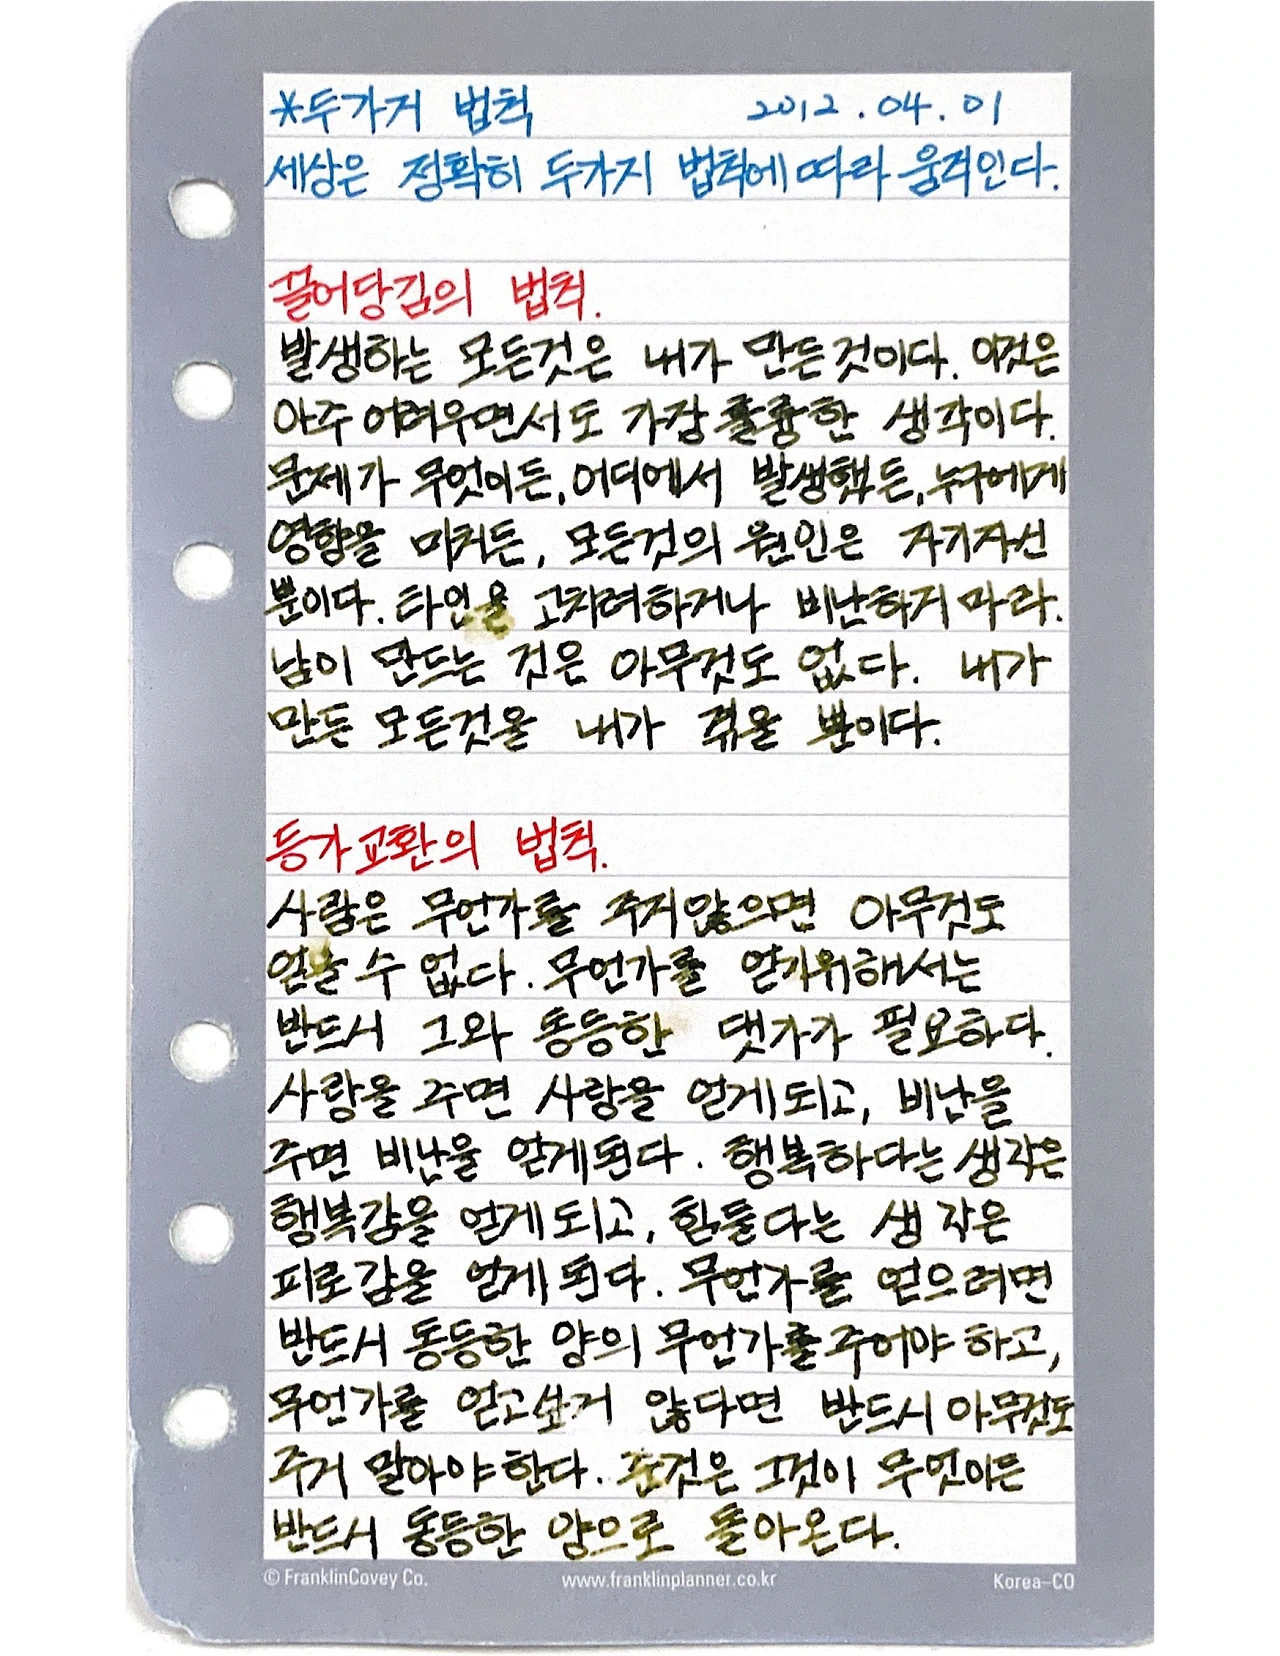 *두가지 법칙 2012.04.01
세상은 정확히 두가지 법칙에 따라 움직인다.
끌어당김의 법칙.
발생하는 모든것은 내가 만든것이다. 이것은
아주 어려우면서도 가장 훌륭한 생각이다.
문제가 무엇이든, 어디에서 발생했든, 누구에게
영향을 미치든, 모든것의 원인은 자기자신
뿐이다. 타인을 고치려하거나 비난하지 마라.
남이 만드는 것은 아무것도 없다. 내가
만든 모든것을 내가 겪을 뿐이다.
등가교환의 법칙.
사람은 무언가를 주지않으면 아무것도
얻을 수 없다. 무언가를 얻기위해서는
반드시 그와 동등한 댓가가 필요하다.
사랑을 주면 사랑을 얻게되고, 비난을
주면 비난을 얻게된다. 행복하다는 생각은
행복감을 얻게되고, 힘들다는 생각은
피로감을 얻게된다. 무언가를 얻으려면
반드시 동등한 양의 무언가를 주어야 하고,
무언가를 얻고싶지 않다면 반드시 아무것도
주지 말아야한다. 준것은 그것이 무엇이든
반드시 동등한 양으로 돌아온다.
© FranklinCovey Co. www.franklinplanner.co.kr Korea-CO